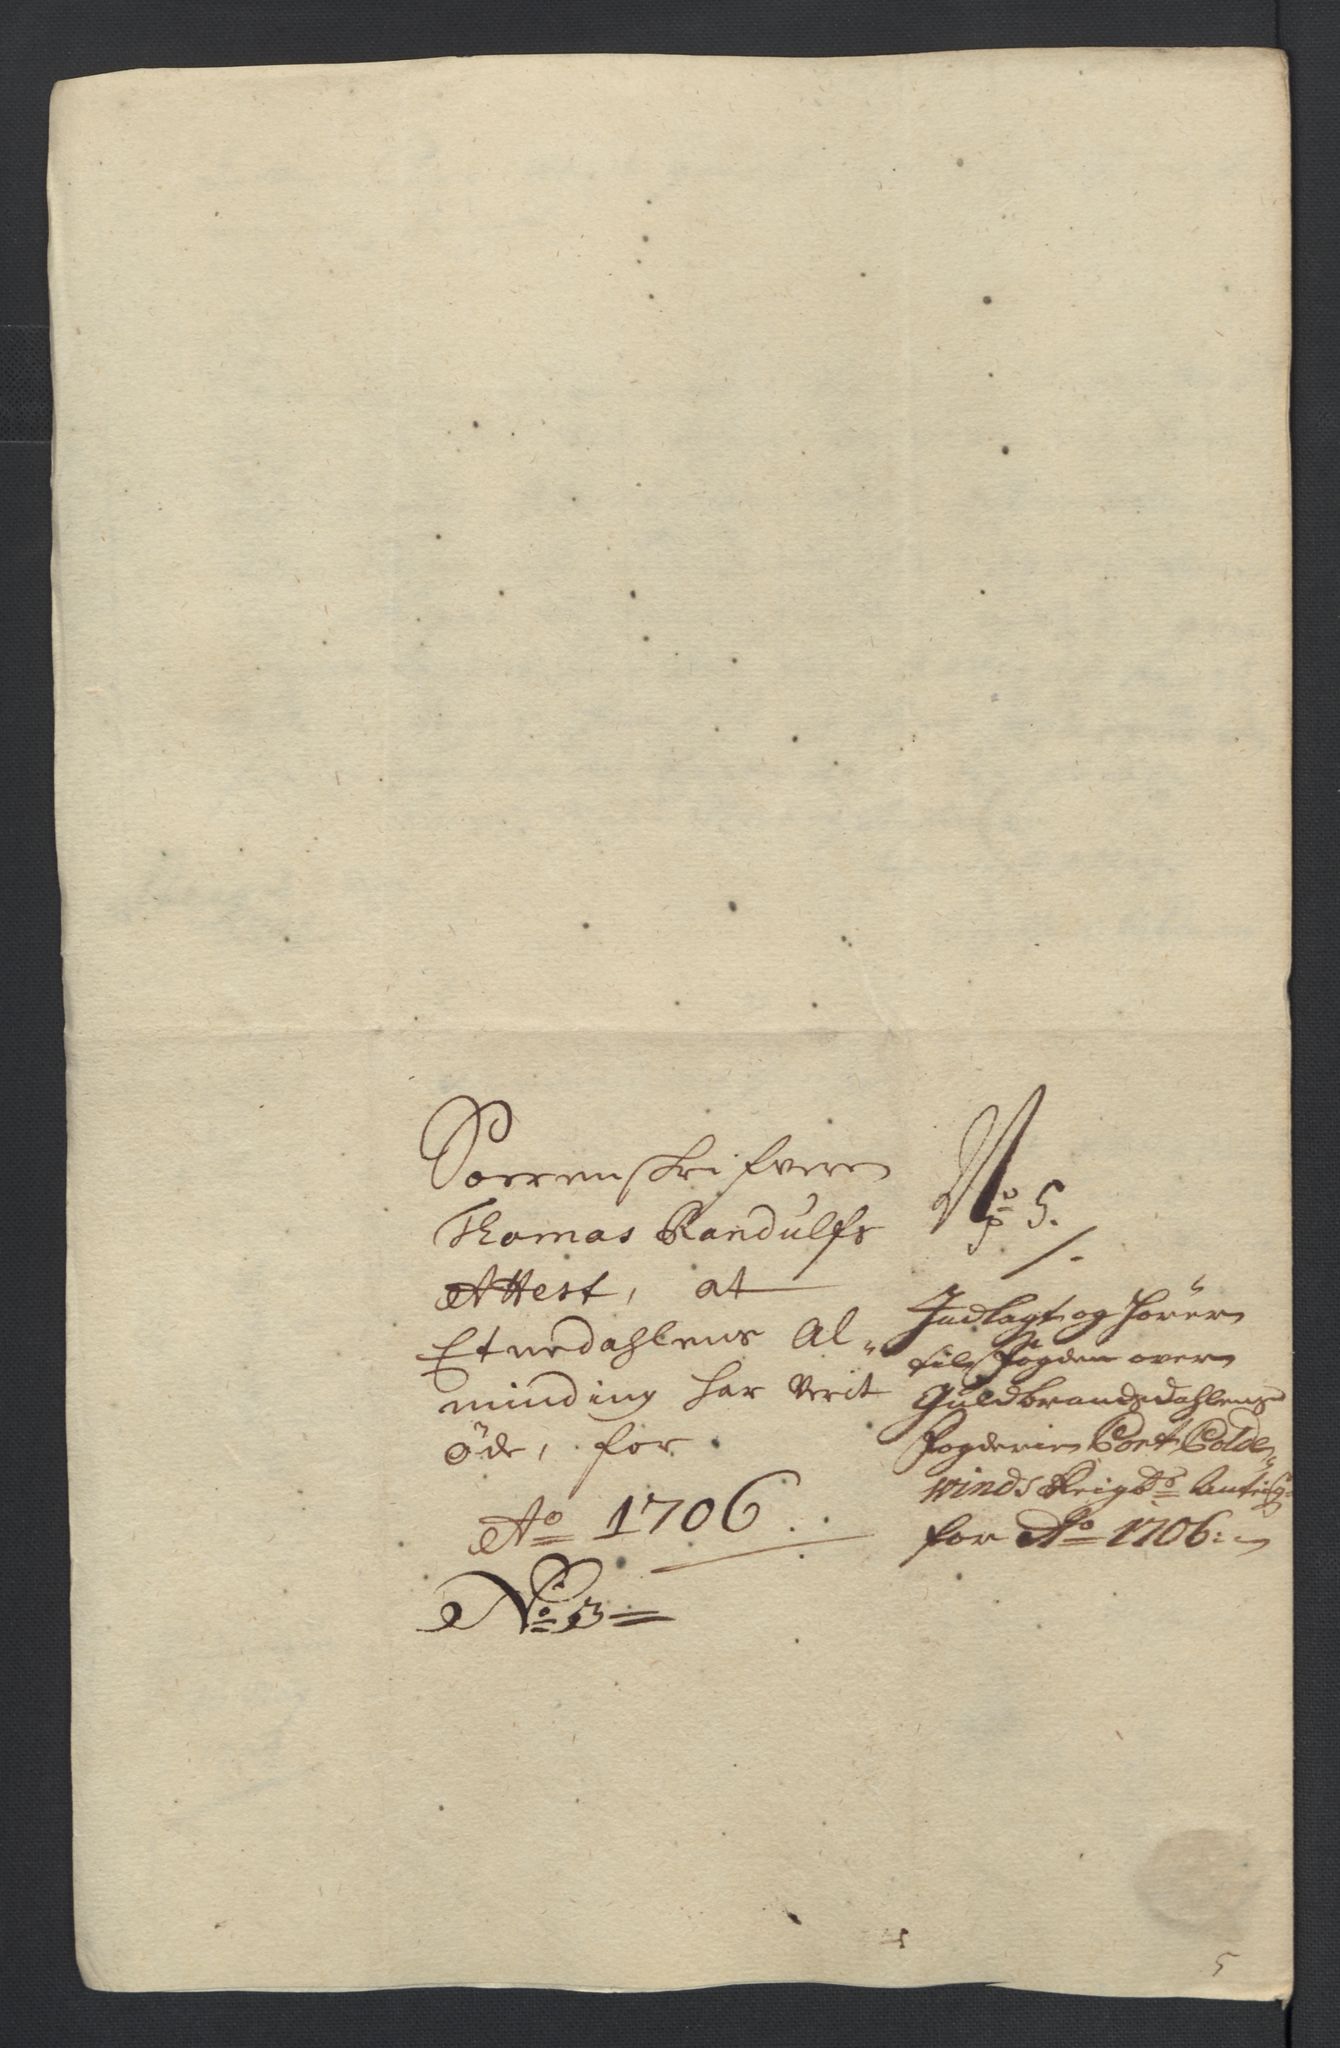 Sorrenskrifveren
Thomas Randulfs
Attest, at
Etnedahlens Al„
minding har verit
öde, for
Ao 1706
No 3
No 5.
Indlagt og hörer
til Fogden over
Guldbrandsdahlens
Fogderie Cort Colde„
winds Reigsk:s Anteig:
for Ao 1706:
5